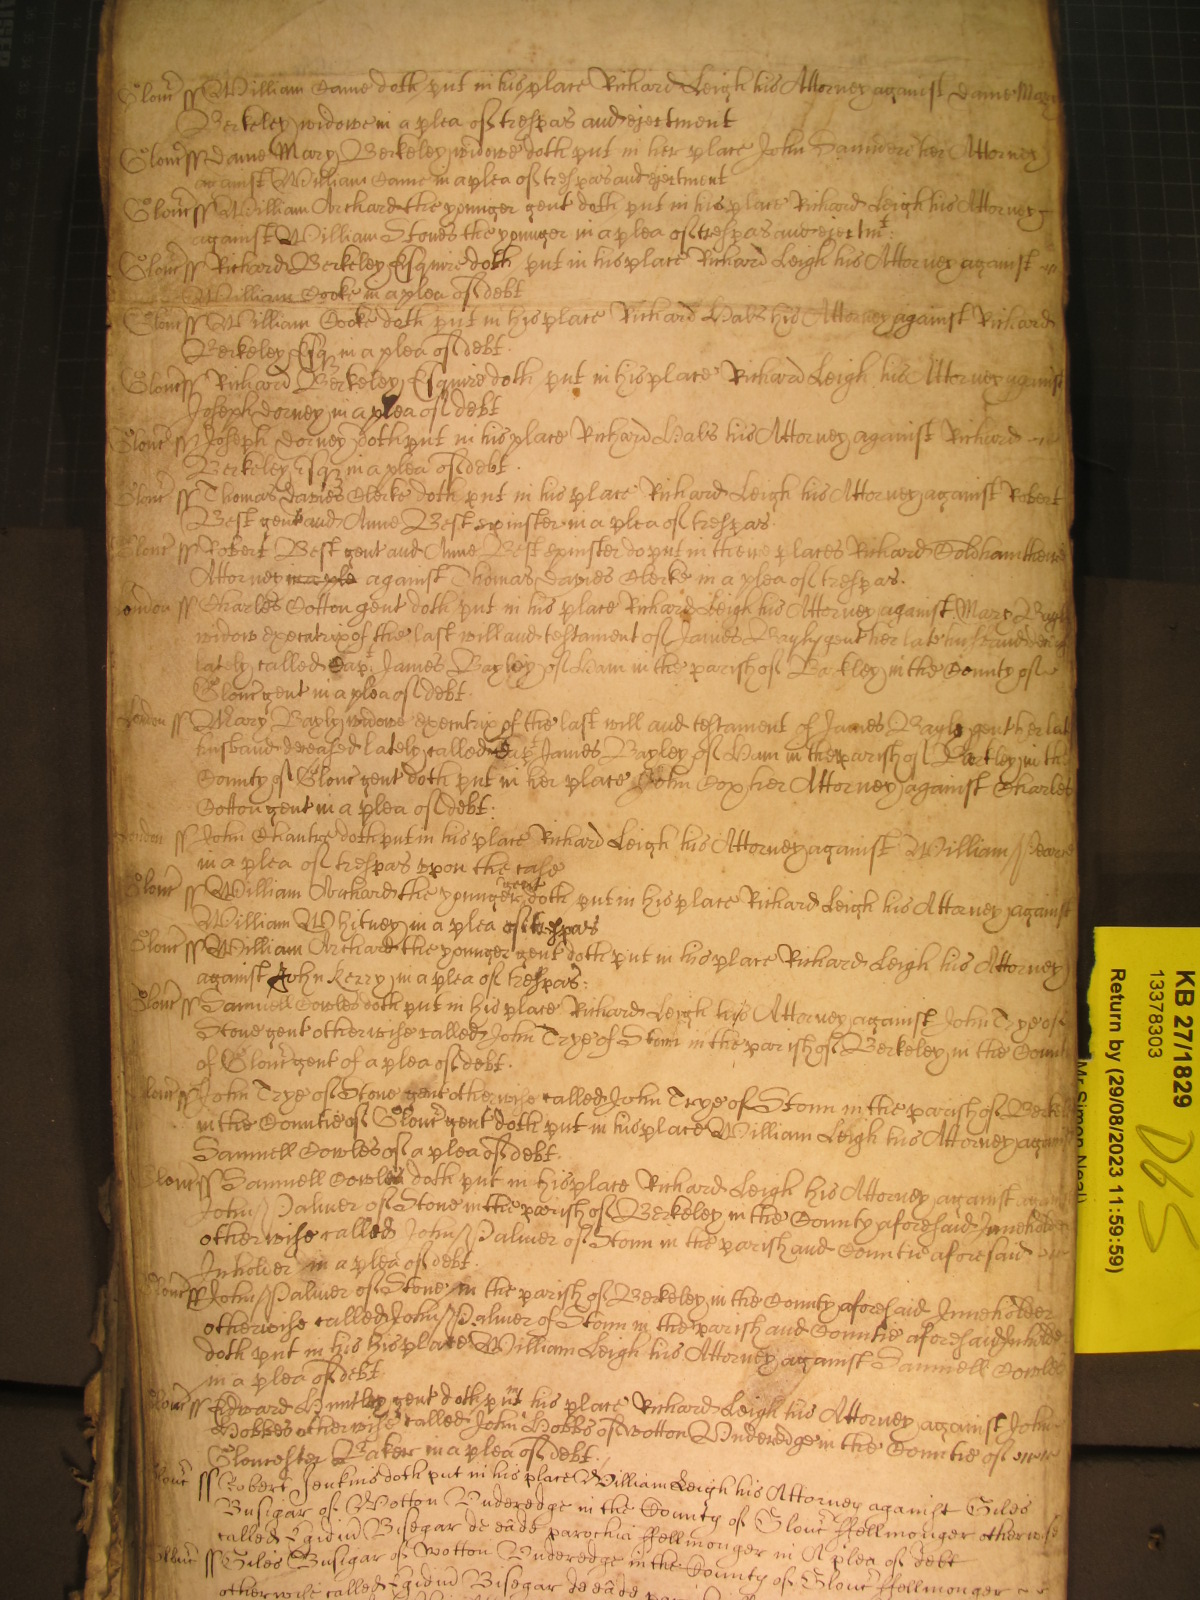 Glouc ss William Came doth put in his place Richard Leigh his Attorney against Dame Mary
Berkeley widowe in a plea of trespas and ejectment
Glouc ss Dame Mary Berkeley widowe doth put in her place John Saunders her Attorney
against William Came in a plea of trespas and ejectment
Glouc ss William Archard the younger gent doth put in his place Richard Leigh his Attorney
against William Stones the younger in a plea of trespas and ejectmt:
Glouc ss Richard Berkeley Esquire doth put in his place Richard Leigh his Attorney against
William Cooke in a plea of debt
Glouc ss William Cooke doth put in his place Richard Habs his Attorney against Richard
Berkeley Esq in a plea of debt.
Glouc ss Richard Berkeley Esquire doth put in his place Richard Leigh his Attorney against
Joseph Dorney in a plea of debt
Glouc ss Joseph Dorney doth put in his place Richard Habs his Attorney against Richard
Berkeley Esq in a plea of debt.
Glouc ss Thomas Davies Clerke doth put in his place Richard Leigh his Attorney against Robert
Best gent and Anne Best spinster in a plea of trespas.
Glouc ss Robert Best gent and Anne Best spinster do put in theire places Richard Coldham theire
Attorney in a ple against Thomas Davies Clerke in a plea of trespas.
London ss Charles Cotton gent doth put in his place Richard Leigh his Attorney against Mary Bayly
widow executrix of the last will and testament of James Bayly gent her late husband
lately called Cap: James Bayley of Ham in the parish of Barkley in the County of
Glouc gent in a plea of debt.
London ss Mary Bayly widowe executrix of the last will and testament of James Bayly gent her late
husband deceased lately called Cap: James Bayley of Ham in the parish of Bartley in the
County of Glouc gent doth put in her place John Cox her Attorney against Charles
Cotton gent in a plea of debt:
London ss John doth put in his place Richard Leigh his Attorney against William
in a plea of trespas upon the case
Glouc ss William Archard the younger gent doth put in his place Richard Leigh his Attorney against
William Whitney in a plea of trespas
Glouc ss William Archard the younger gent doth put in his place Richard Leigh his Attorney
against John Kerry in a plea of trespas:
Glouc ss Samuell Cowles doth put in his place Richard Leigh his Attorney against John Trye of
Stone gent otherwise called John Trye of Stonn in the parish of Berkeley in the County
of Glouc gent of a plea of debt.
Glouc ss John Trye of Stone gent otherwise called John Trye of Stonn in the parish of Berkeley
in the Countie of Glouc gent doth put in his place William Leigh his Attorney against
Samuell Cowles of a plea of debt.
Glouc ss Samuell Cowles doth put in his place Richard Leigh his Attorney against against
John Palmer of Stone in the parish of Berkeley in the County aforesaid Inneholder
otherwise called John Palmer of Stonn in the parish and Countie aforesaid
Inholder in a plea of debt.
Glouc ss John Palmer of Stone in the parish of Berkeley in the County aforesaid Inneholder
otherwise called John Palmer of Stonn in the parish and Countie aforesaid Inholder
doth put in his his place William Leigh his Attorney against Samuell Cowles
in a plea of debt
Glouc ss Edward Huntley gent doth put in his place Richard Leigh his Attorney against John
Hobbes otherwise called John Hobbs of wotton Underedge in the Countie of
Gloucester Baker in a plea of debt.
Glouc ss Robert Jenkins doth put in his place William Leigh his Attorney against Giles
Busigar of Wotton Underedge in the County of Glouc ffellmonger otherwise
called Egidiu Bisegar de eâdē parochia ffellmonger in A plea of debt
Glouc ss Giles Busigar of wotton Underedge in the County of Glouc ffellmonger
otherwise called Egidiu Bisegar de eâdē
KB 27/1829
13378303
Return by (29/08/2023 11:59:59)
Mr Simon Neal)
D65